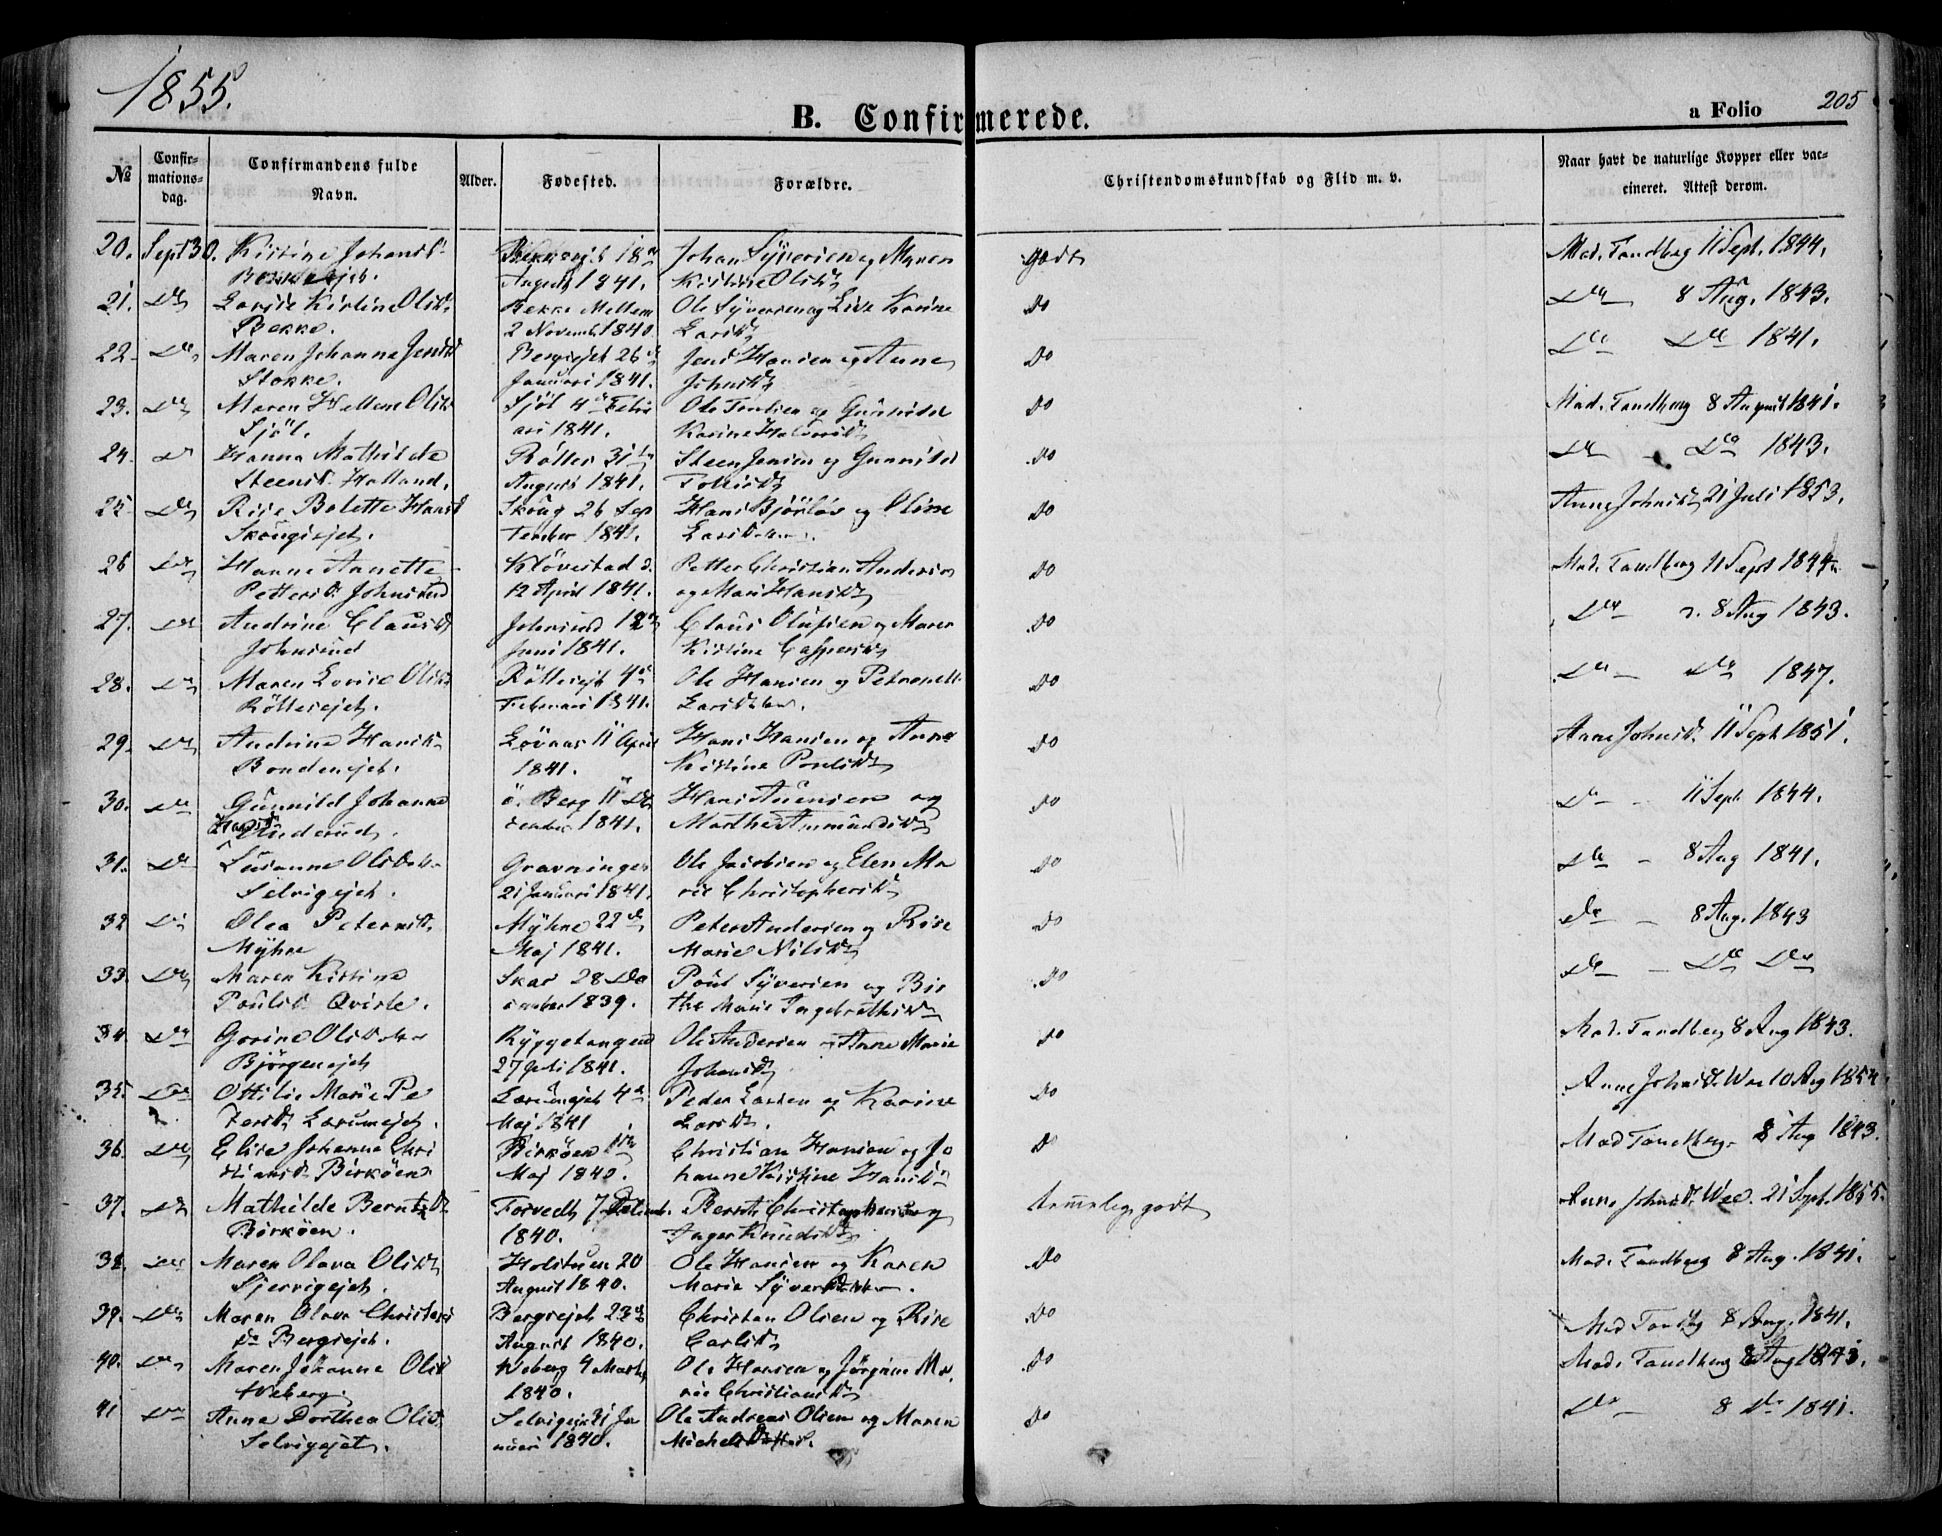 1855.
B. Confirmerede.
a Folio 205
№ Confir-mations-dag. Confirmandens fulde Navn. Alder. Fødested. Forældre. Christendomskundskab og Flid m. v. Naar havt de naturlige Kopper eller vac-cineret. Attest derom.
20. Sept 30. Kirstine Johansd. August 1841. Johan Syversen og Maren godt Mad. Tandberg 11 Sept. 1844.
Kirstine Olsd.
21. Do Kirstine Olsd. Bekke Mellem Ole Syversen og Lise Karine Do Do 8 Aug. 1843.
Bekke. 2 Novemb. 1840 Larsd.
22. Do Maren Johanne Jensd. Bergsejet 26 Jens Hansen og Anne Do Do Do 1841.
Stokke. Januari 1841. Johnsd.
23. Do Maren Hellene Olsd. Sjøl 4 Febru Ole Paulsen og Gunnild Do Mad. Tandberg 8 August 1841.
Sjøl. ari 1841. Karine Halvorsd.
24. Do Hanna Mathilde Røller 31 Steen Jensen og Gunnild Do Do Do 1843.
Steensd. Holland. August 1841.
25. Do Risse Bolette Hansd. Skoug 26 Sep Hans Bjørløv og Oline Do Anne Johnsd. 21 Juli 1853.
Skougsejet. tember 1841. Larsd.
26 Do Hanne Annette Kløvestad d. Petter Christian Anders Do Mad. Tandberg 11 Sept 1844
Pettersd. Johnsrud 12 April 1841. og Mari Hansd.
27. Do Andrine Clausd. Johnsrud 12 Claus Olufsen og Maren Do Do d. 8 Aug 1843.
Johnsrud Juni 1841. Kirstine Caspersd.
28. Do Maren Lovise Olsd. Røttesejet 4 Ole Hansen og Petronelle Do Do Do 1847.
Røttesejet. Februari 1841. Larsd.
29. Do Andrine Hansd. Løvaas 11 April Hans Hansen og Anne Do Anne Johnsd. 11 Sept 1851.
Bondensejet. 1841. Kirstine Poulsd.
30. Do Gunnild Johanne ö. Berg 11 De Hans Auensen og Do Do 11 Sept 1844.
Hansd. cember 1841. Marthe Amundsd.
31. Do Susanne Olsd. Gravningen Ole Jacobsen og Elen Ma Do Do 8 Aug 1841.
Selvigejet. 21 Januari 1841. rie Christophersd.
32 Do Olea Petersd. Myhre 22 Peter Andersen og Risse Do Do 8 Aug. 1843
Myhre Maj 1841. Marie Nilsd.
33. Do Maren Kirstine Skar 28 De Poul Syversen og Bir Do Do Do Do
Poulsd. Qvisle. cember 1839. the Marie Ingebrethsd.
34. Do Gorine Olsd. Ryggetangen Ole Andersen Anne Marie Do Mad. Tandberg 8 Aug 1843.
Bjørgensejet 27 Juli 1841. Johansd.
35. Do Ottilie Marie Pe Lorumejet 4 Peder Larsen og Karine Do Anne Johnsd. Wee 10 Aug 1854
tersd. Lorumejet. Maj 1841 Larsd.
36. Do Elise Johanne Chri Birkøen Christian Hansen og Jo Do Mad Tandberg 8 Aug 1843.
stiansd. Birkøen Maj 1840. hanne Kirstine Hansd.
37. Do Mathilde Berntsd. Torvedt 7 Bernt Christophersen og temmelig godt Anne Johnsd. Wee. 21 Sept. 1855.
Birkøen. 1840. Inger Knudsd.
38. Do Maren Olava Olsd. Holstuen 20 Ole Hansen og Karen Do Mad. Tandberg 8 Aug. 1841.
August 1840. Marie Syversd.
39. Do Maren Olava Christens Bergsejet 22 Christen Olsen og Risse Do Mad Tandbg 8 Aug. 1841.
Bergsejet. August 1840. Carlsd.
40. Do Maren Johanne Olsd. Weberg 4 Marts Ole Hansen og Jørgine Ma Do Mad. Tandberg 8 Aug 1843.
Weberg. 1840. rie Christiansd.
41 Do Anne Dorthea Olsd. Selvigejet 21 Ja Ole Andreas Olsen og Maren Do Do 8 Do 1841.
Selvigejet. nuari 1840. Michelsdatter.